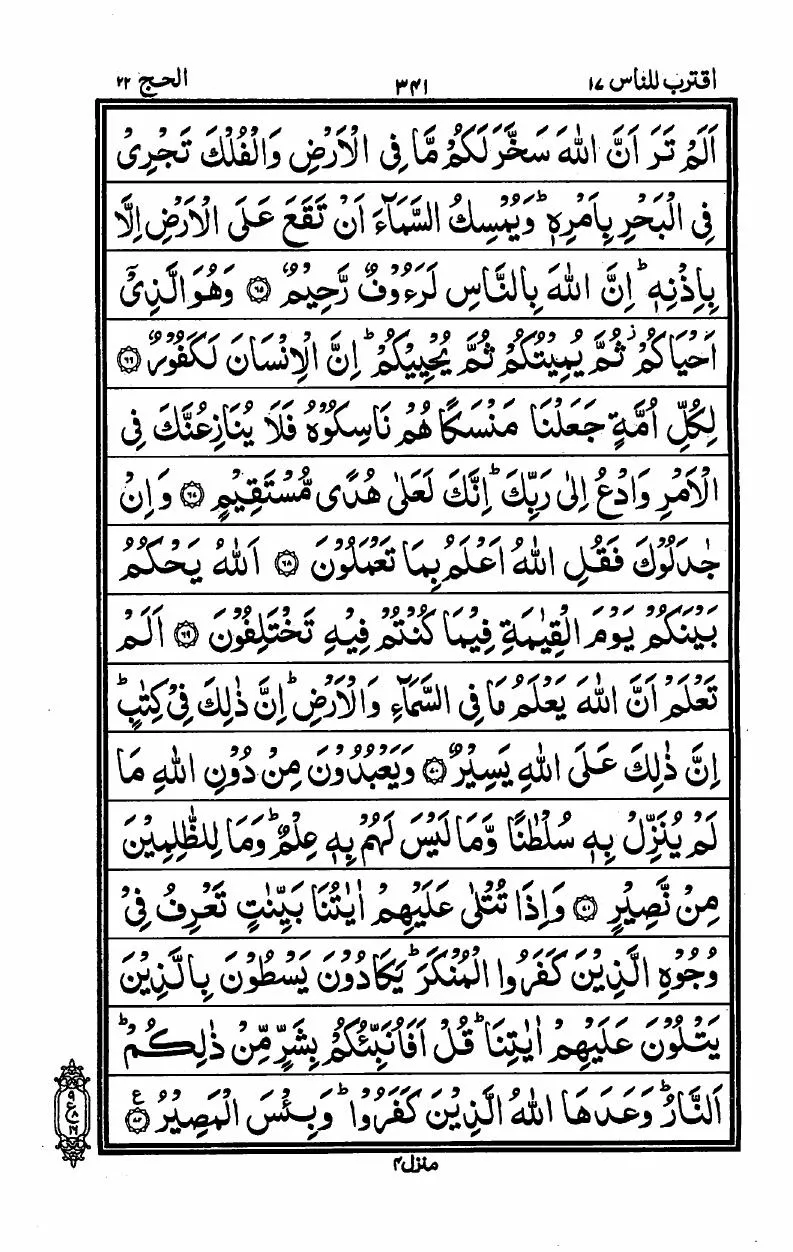 اقترب للناس ١٧
٣٤١
الحج ٢٢
اَلَمْ تَرَ اَنَّ اللّٰهَ سَخَّرَ لَكُمْ مَّا فِى الْاَرْضِ وَالْفُلْكَ تَجْرِىْ
فِى الْبَحْرِ بِاَمْرِهٖ ؕ وَيُمْسِكُ السَّمَآءَ اَنْ تَقَعَ عَلَى الْاَرْضِ اِلَّا
بِاِذْنِهٖ ؕ اِنَّ اللّٰهَ بِالنَّاسِ لَرَءُوْفٌ رَّحِيْمٌ ۝٦٥ وَهُوَ الَّذِىْۤ
اَحْيَاكُمْ ؗ ثُمَّ يُمِيْتُكُمْ ثُمَّ يُحْيِيْكُمْ ؕ اِنَّ الْاِنْسَانَ لَكَفُوْرٌ ۝٦٦
لِكُلِّ اُمَّةٍ جَعَلْنَا مَنْسَكًا هُمْ نَاسِكُوْهُ فَلَا يُنَازِعُنَّكَ فِى
الْاَمْرِ وَادْعُ اِلٰى رَبِّكَ ؕ اِنَّكَ لَعَلٰى هُدًى مُّسْتَقِيْمٍ ۝٦٧ وَاِنْ
جٰدَلُوْكَ فَقُلِ اللّٰهُ اَعْلَمُ بِمَا تَعْمَلُوْنَ ۝٦٨ اَللّٰهُ يَحْكُمُ
بَيْنَكُمْ يَوْمَ الْقِيٰمَةِ فِيْمَا كُنْتُمْ فِيْهِ تَخْتَلِفُوْنَ ۝٦٩ اَلَمْ
تَعْلَمْ اَنَّ اللّٰهَ يَعْلَمُ مَا فِى السَّمَآءِ وَالْاَرْضِ ؕ اِنَّ ذٰلِكَ فِىْ كِتٰبٍ ؕ
اِنَّ ذٰلِكَ عَلَى اللّٰهِ يَسِيْرٌ ۝٧٠ وَيَعْبُدُوْنَ مِنْ دُوْنِ اللّٰهِ مَا
لَمْ يُنَزِّلْ بِهٖ سُلْطٰنًا وَّمَا لَيْسَ لَهُمْ بِهٖ عِلْمٌ ؕ وَمَا لِلظّٰلِمِيْنَ
مِنْ نَّصِيْرٍ ۝٧١ وَاِذَا تُتْلٰى عَلَيْهِمْ اٰيٰتُنَا بَيِّنٰتٍ تَعْرِفُ فِىْ
وُجُوْهِ الَّذِيْنَ كَفَرُوا الْمُنْكَرَ ؕ يَكَادُوْنَ يَسْطُوْنَ بِالَّذِيْنَ
يَتْلُوْنَ عَلَيْهِمْ اٰيٰتِنَا ؕ قُلْ اَفَاُنَبِّئُكُمْ بِشَرٍّ مِّنْ ذٰلِكُمْ ؕ
اَلنَّارُ ؕ وَعَدَهَا اللّٰهُ الَّذِيْنَ كَفَرُوْا ؕ وَبِئْسَ الْمَصِيْرُ ۝٧٢ ع
٩
ع ٨
١٦
منزل ٤